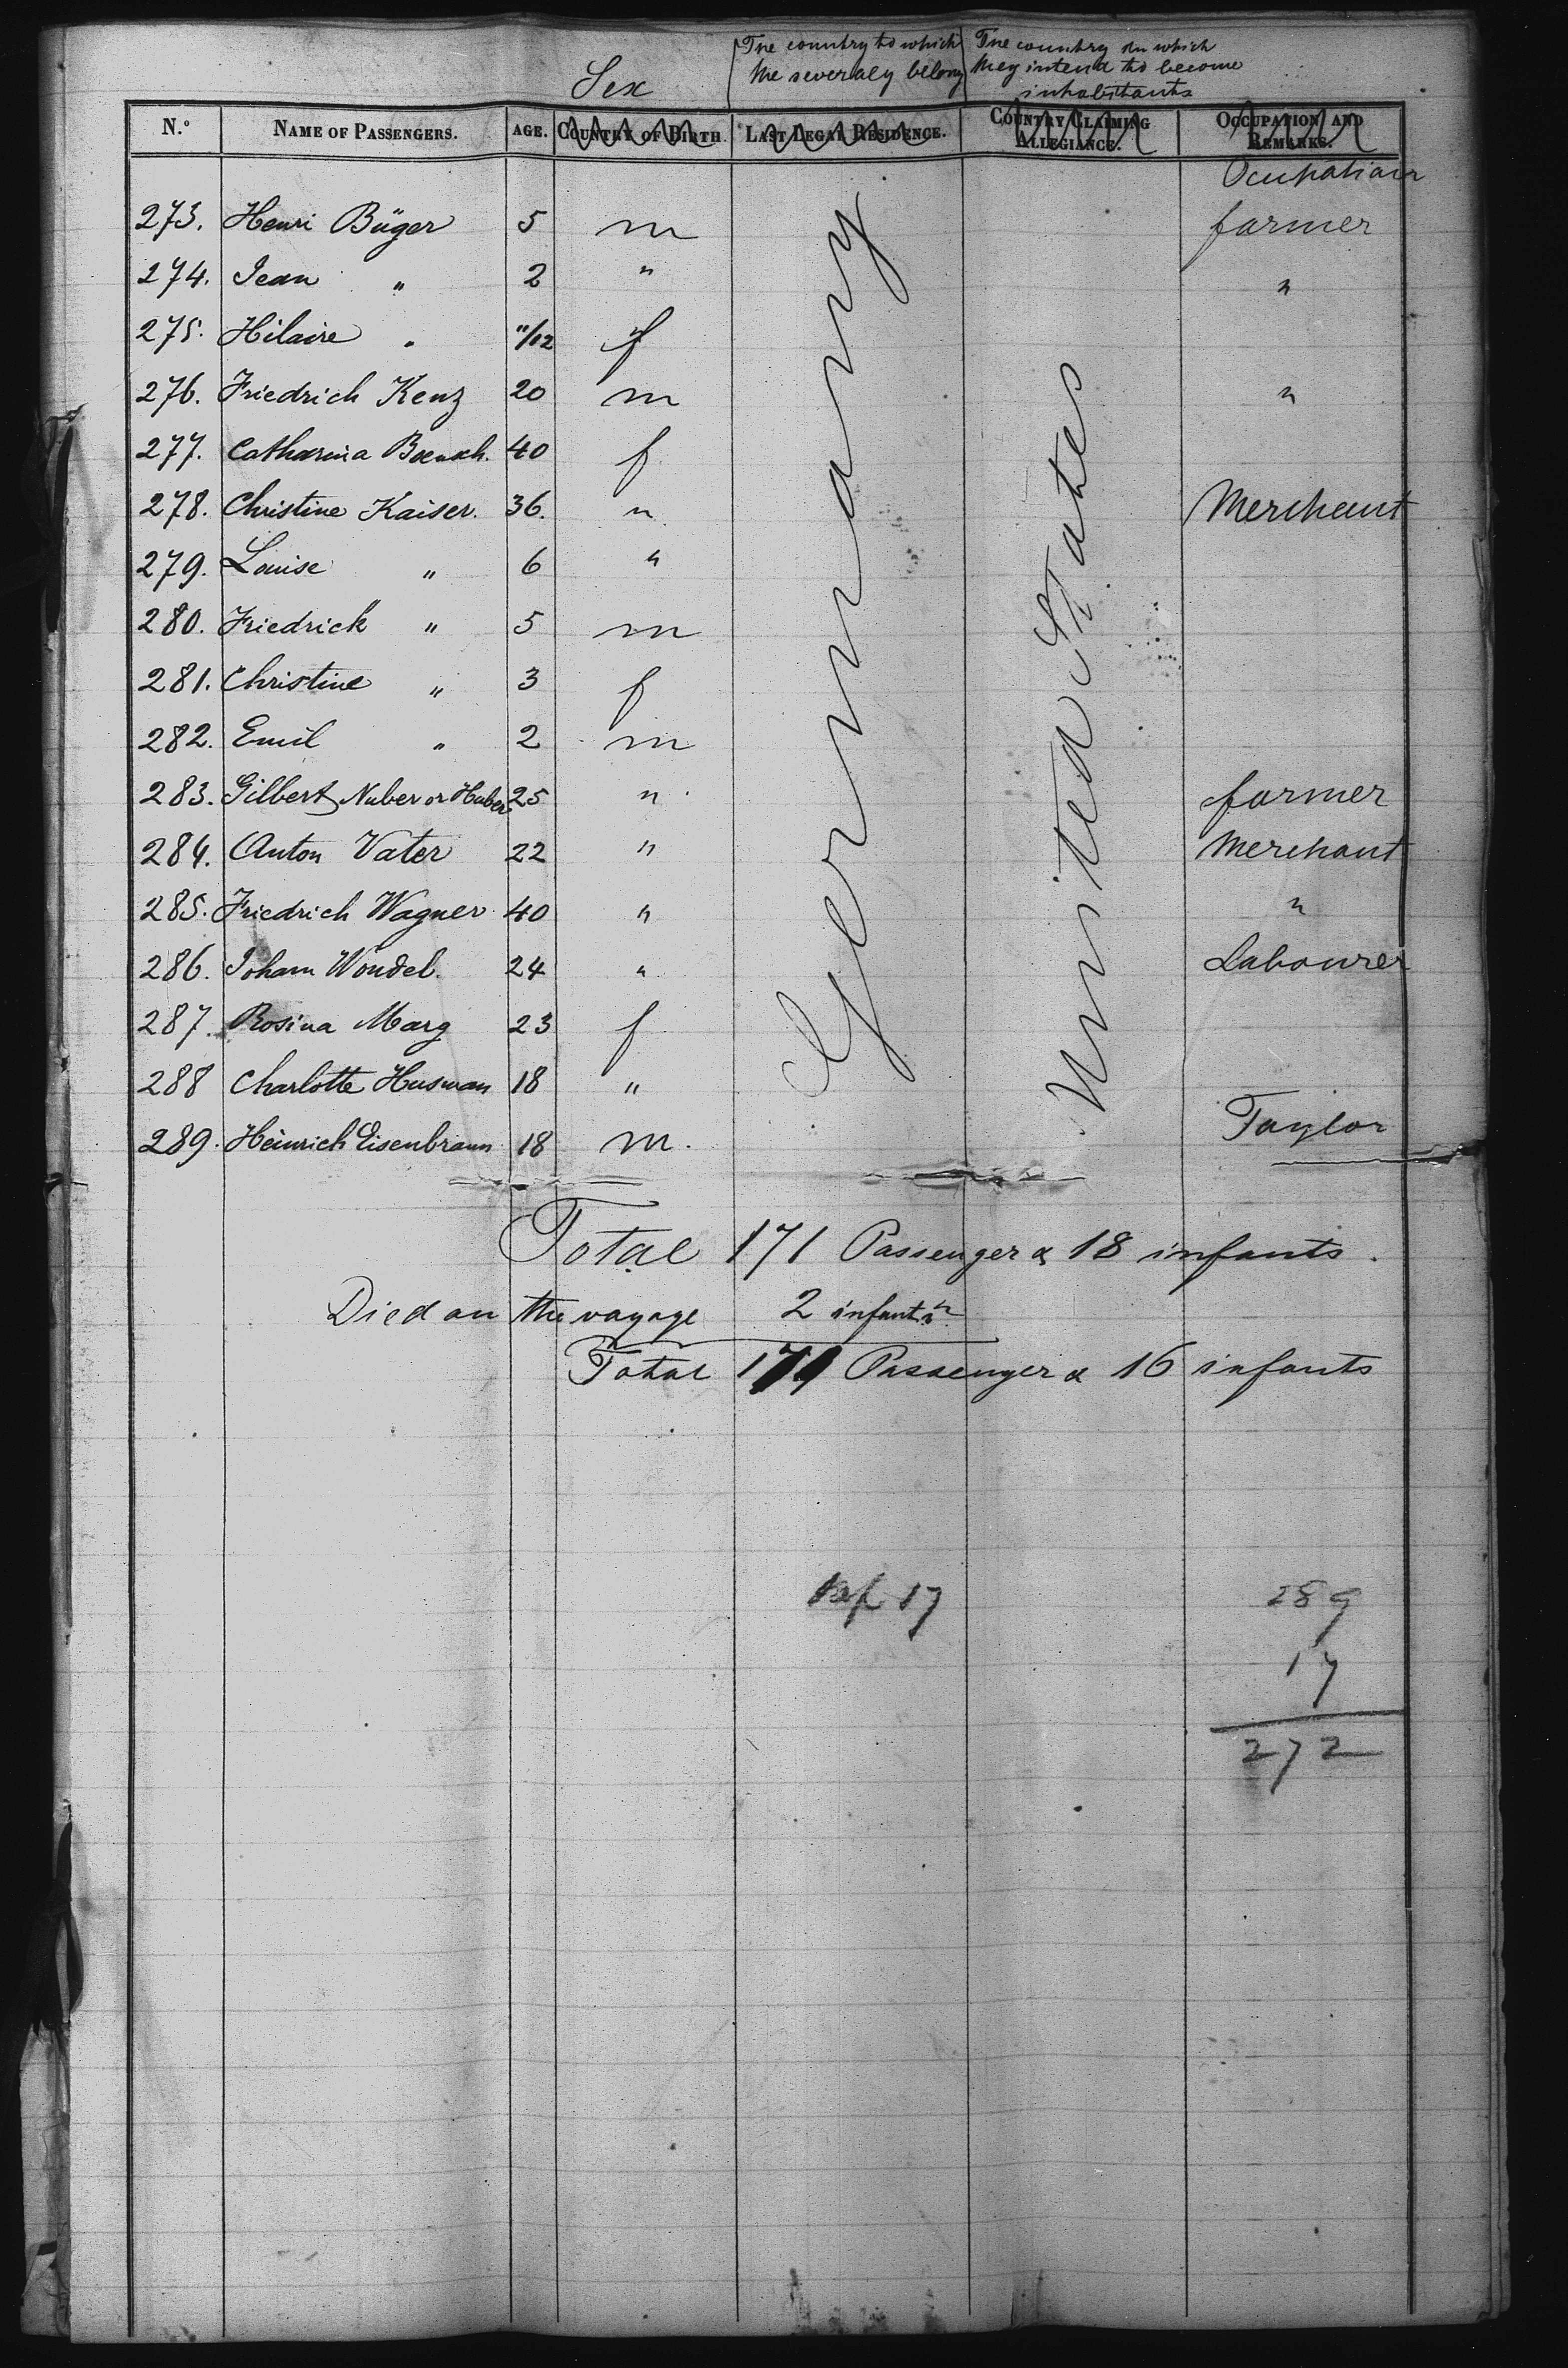 Sex
The country to which the severaly belong
The country in which they intend to become inhabitants
N.º NAME OF PASSENGERS. AGE. COUNTRY OF BIRTH. LAST LEGAL RESIDENCE. COUNTRY CLAIMING ALLEGIANCE. OCCUPATION AND REMARKS.
Ocupation
273. Henri Büger 5 m farmer
274. Jean " 2 " "
275. Hilaire " 11/12 f
276. Friedrich Kenz 20 m "
277. Catharina 40 f
278. Christine Kaiser. 36. " Merchant
279. Louise " 6 "
280. Friedrick " 5 m
281. Christine " 3 f
282. Emil " 2 m
283. Gilbert Nuber or Huber 25 " farmer
284. Anton Vater 22 " Merchant
285. Friedrich Wagner 40 " "
286. Joham Wondel. 24 " Labourer
287. Rosina Marg 23 f
288 Charlotte Husman 18 "
289. Heinrich Eisenbraun 18 m. Taylor
Germany
United States
Total 171 Passenger & 18 infants.
Died on the voyage 2 infants
Total Passenger & 16 infants
17
289
17
272